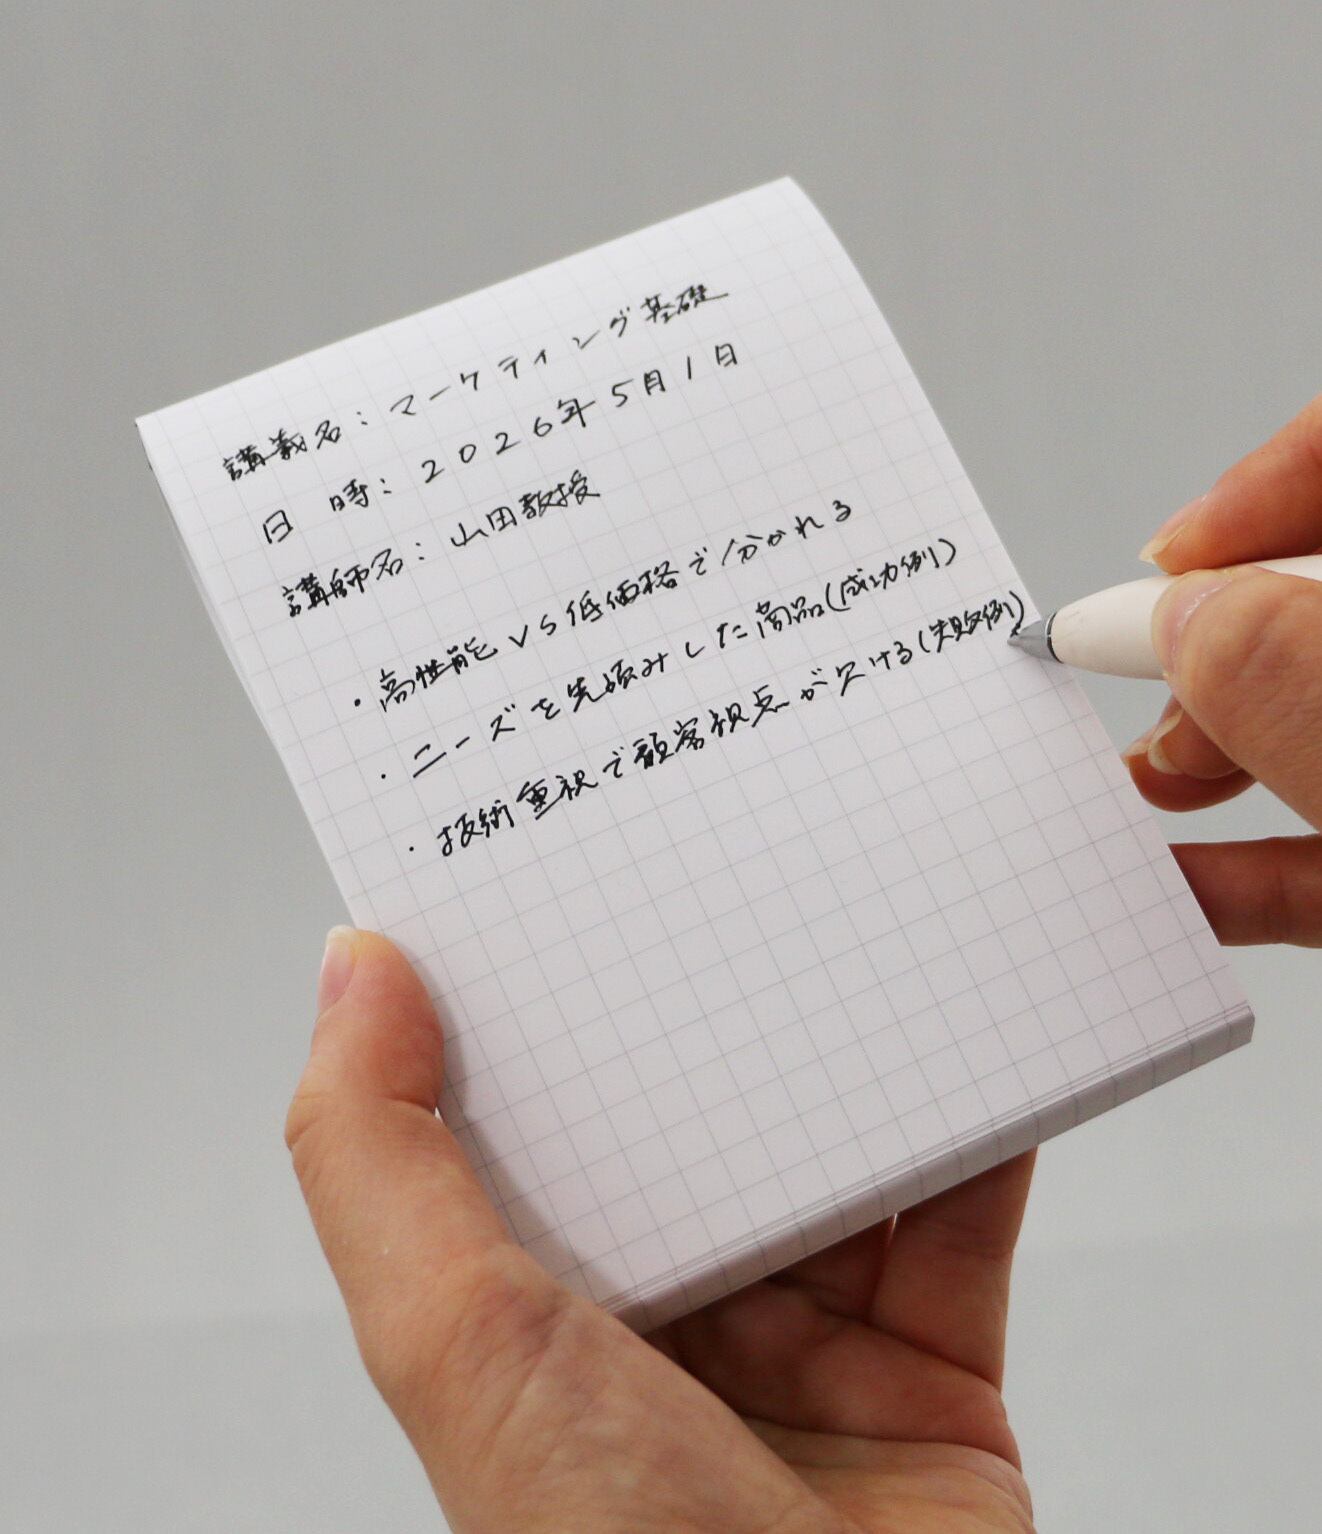 講義名：マーケティング基礎
日　時：２０２６年５月１日
講師名：山田教授
・高性能VS低価格で分かれる
・ニーズを先読みした商品(成功例)
・技術重視で顧客視点が欠ける(失敗例)